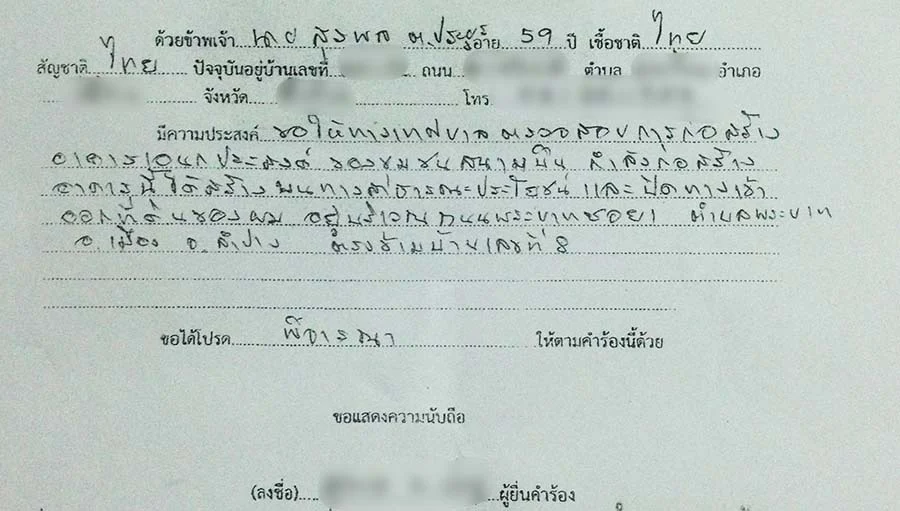 ด้วยข้าพเจ้า นาย สุรพล ต.ประยูร อายุ 59 ปี เชื้อชาติ ไทย
สัญชาติ ไทย ปัจจุบันอยู่บ้านเลขที่ ถนน ตำบล อำเภอ
จังหวัด โทร
มีความประสงค์ ขอให้ทางเทศบาล ตรวจสอบการก่อสร้าง
อาคารเอนกประสงค์ ของชุมชนสนามบิน กำลังก่อสร้าง
อาคารนี้ได้สร้างบนทางสาธารณะประโยชน์ และปิดทางเข้า
ออกที่ดินของผม อยู่บริเวณถนนพระบาทซอย1 ตำบลพระบาท
อ.เมือง จ.ลำปาง ตรงข้ามบ้านเลขที่ 8
ขอได้โปรด พิจารณา ให้ตามคำร้องนี้ด้วย
ขอแสดงความนับถือ
(ลงชื่อ) ผู้ยื่นคำร้อง